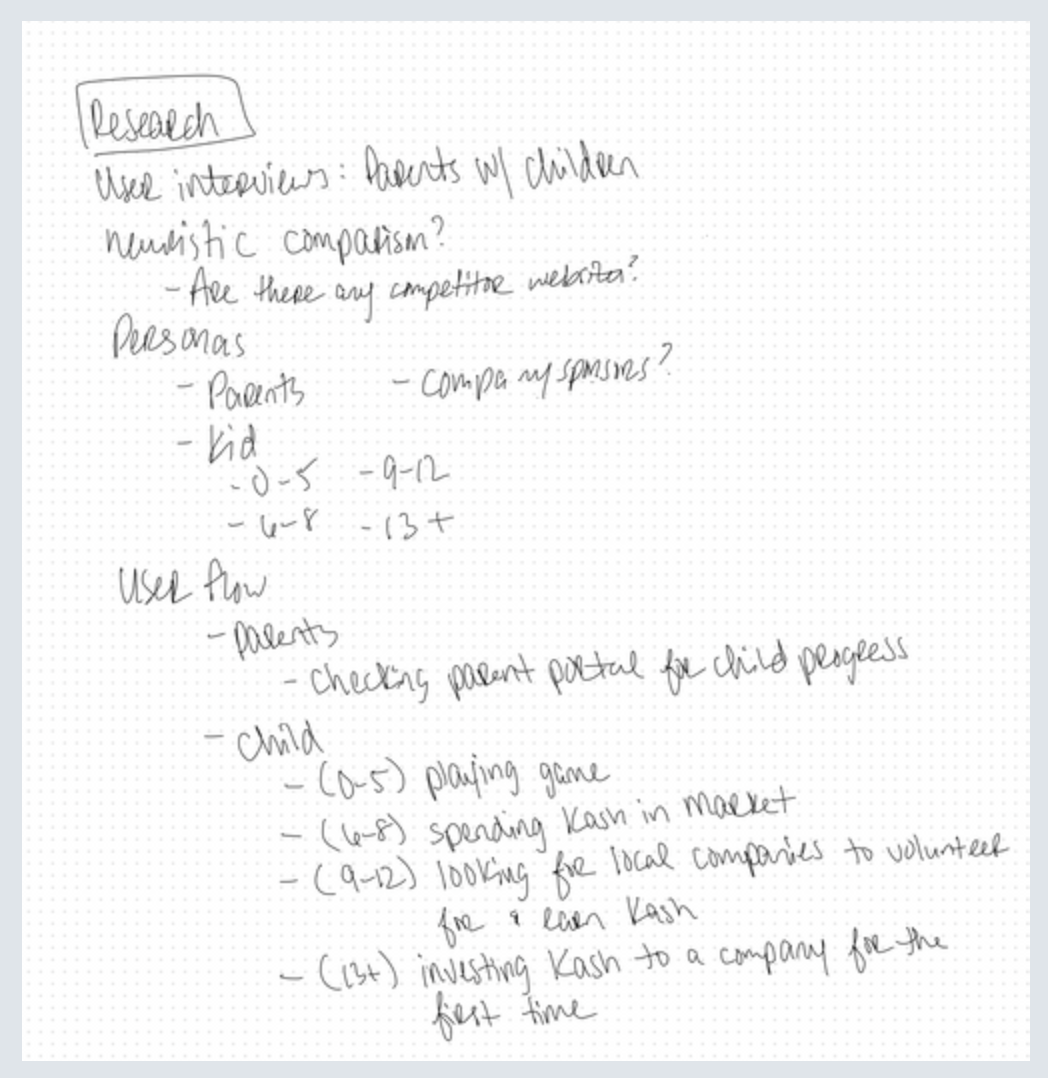 Research
User interviews: Parents w/ children
heuristic comparism?
- Are there any competitor websites?
Personas
- Parents - company sponsors?
- Kid
- 0-5 - 9-12
- 6-8 - 13+
User flow
- parents
- checking parent portal for child progress
- child
- (0-5) playing game
- (6-8) spending Kash in market
- (9-12) looking for local companies to volunteer
for & earn Kash
- (13+) investing Kash to a company for the
first time